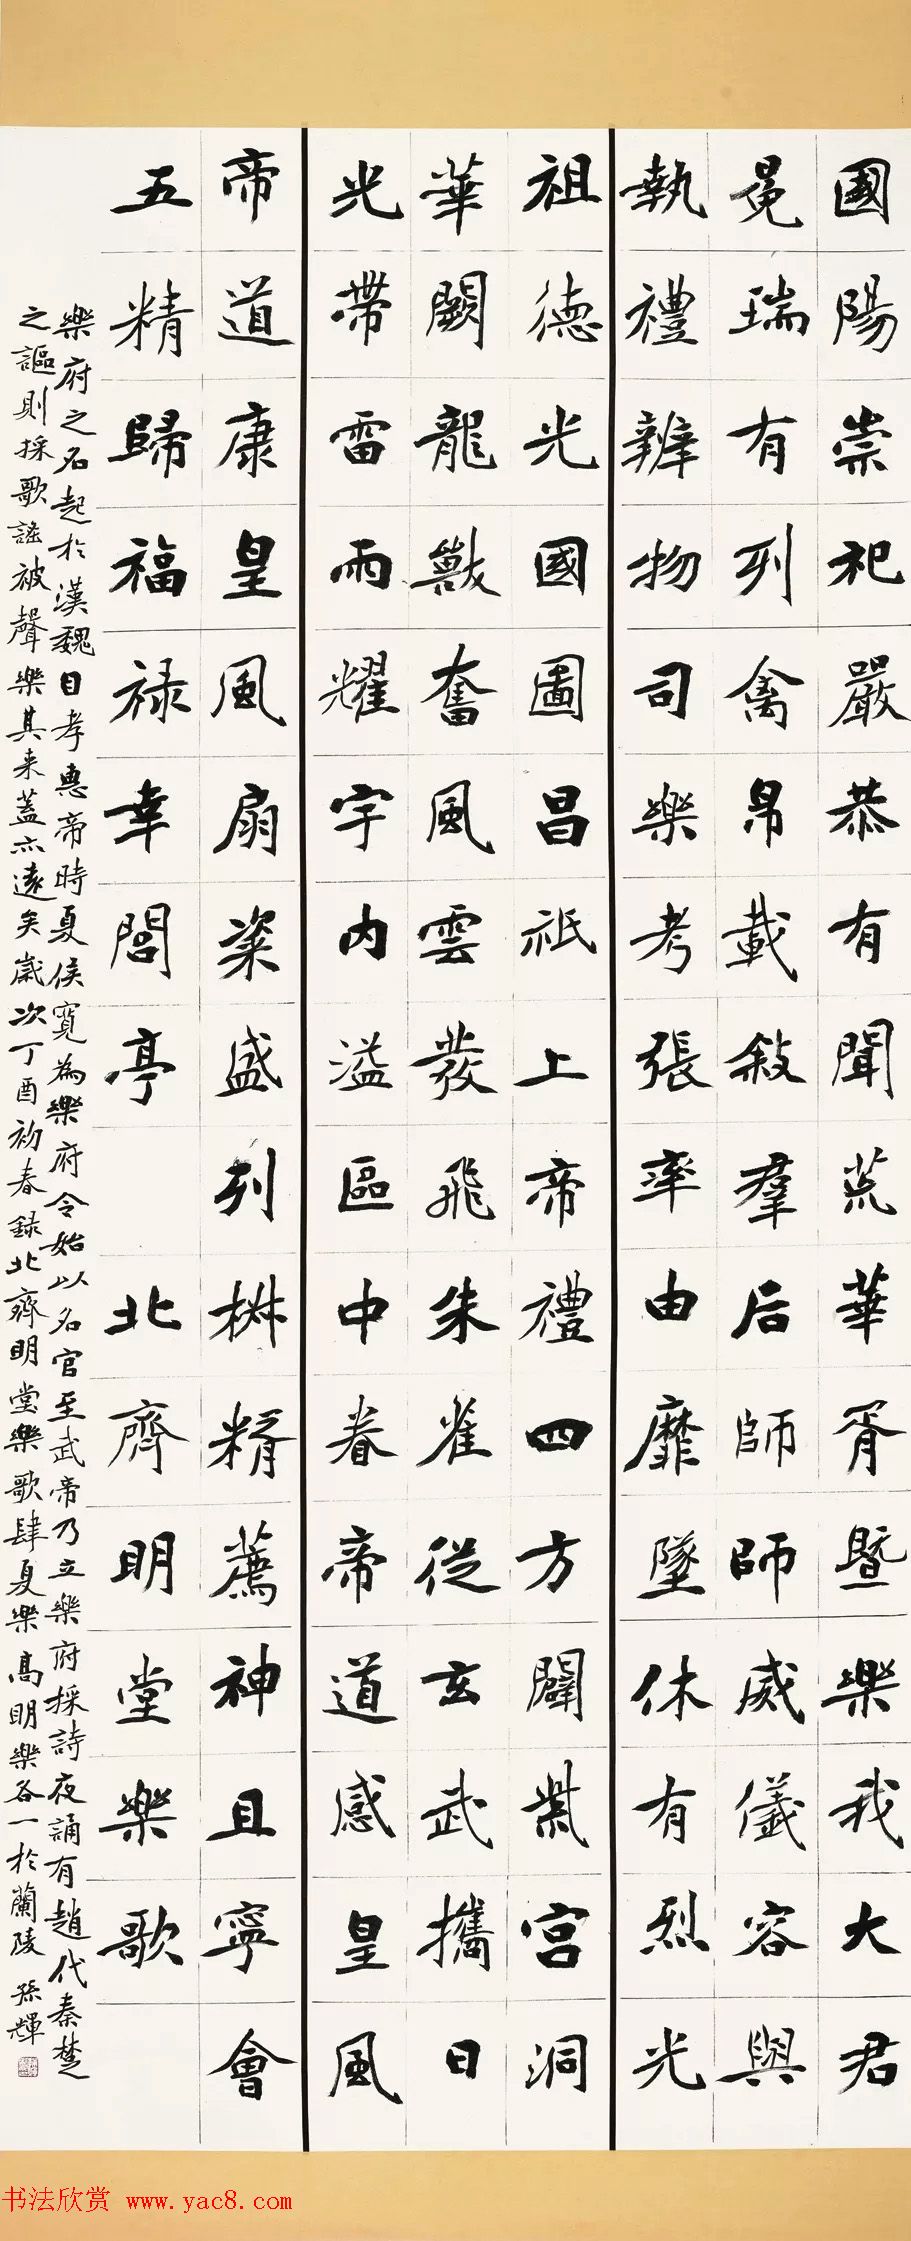 國陽崇祀嚴恭有聞荒華胥暨樂我大君
冕瑞有列禽帛載敘羣后師師威儀容與
執禮辨物司樂考張率由靡墜休有烈光
祖德光國圖昌祇上帝禮四方闢紫宮洞
華闕龍獸奮風雲發飛朱雀從玄武攜日
光帶雷雨耀宇內溢區中眷帝道感皇風
帝道康皇風扇粢盛列椒糈薦神且寧會
五精歸福祿幸閻亭 北齊明堂樂歌
樂府之名起於漢魏自孝惠帝時夏侯寬為樂府令始以名官至武帝乃立樂府採詩夜誦有趙代秦楚
之謳則採歌謠被聲樂其来蓋亦遠矣歲次丁酉初春録北齊明堂樂歌肆夏樂高明樂各一於蘭陵 孫輝
书法欣赏 www.yac8.com